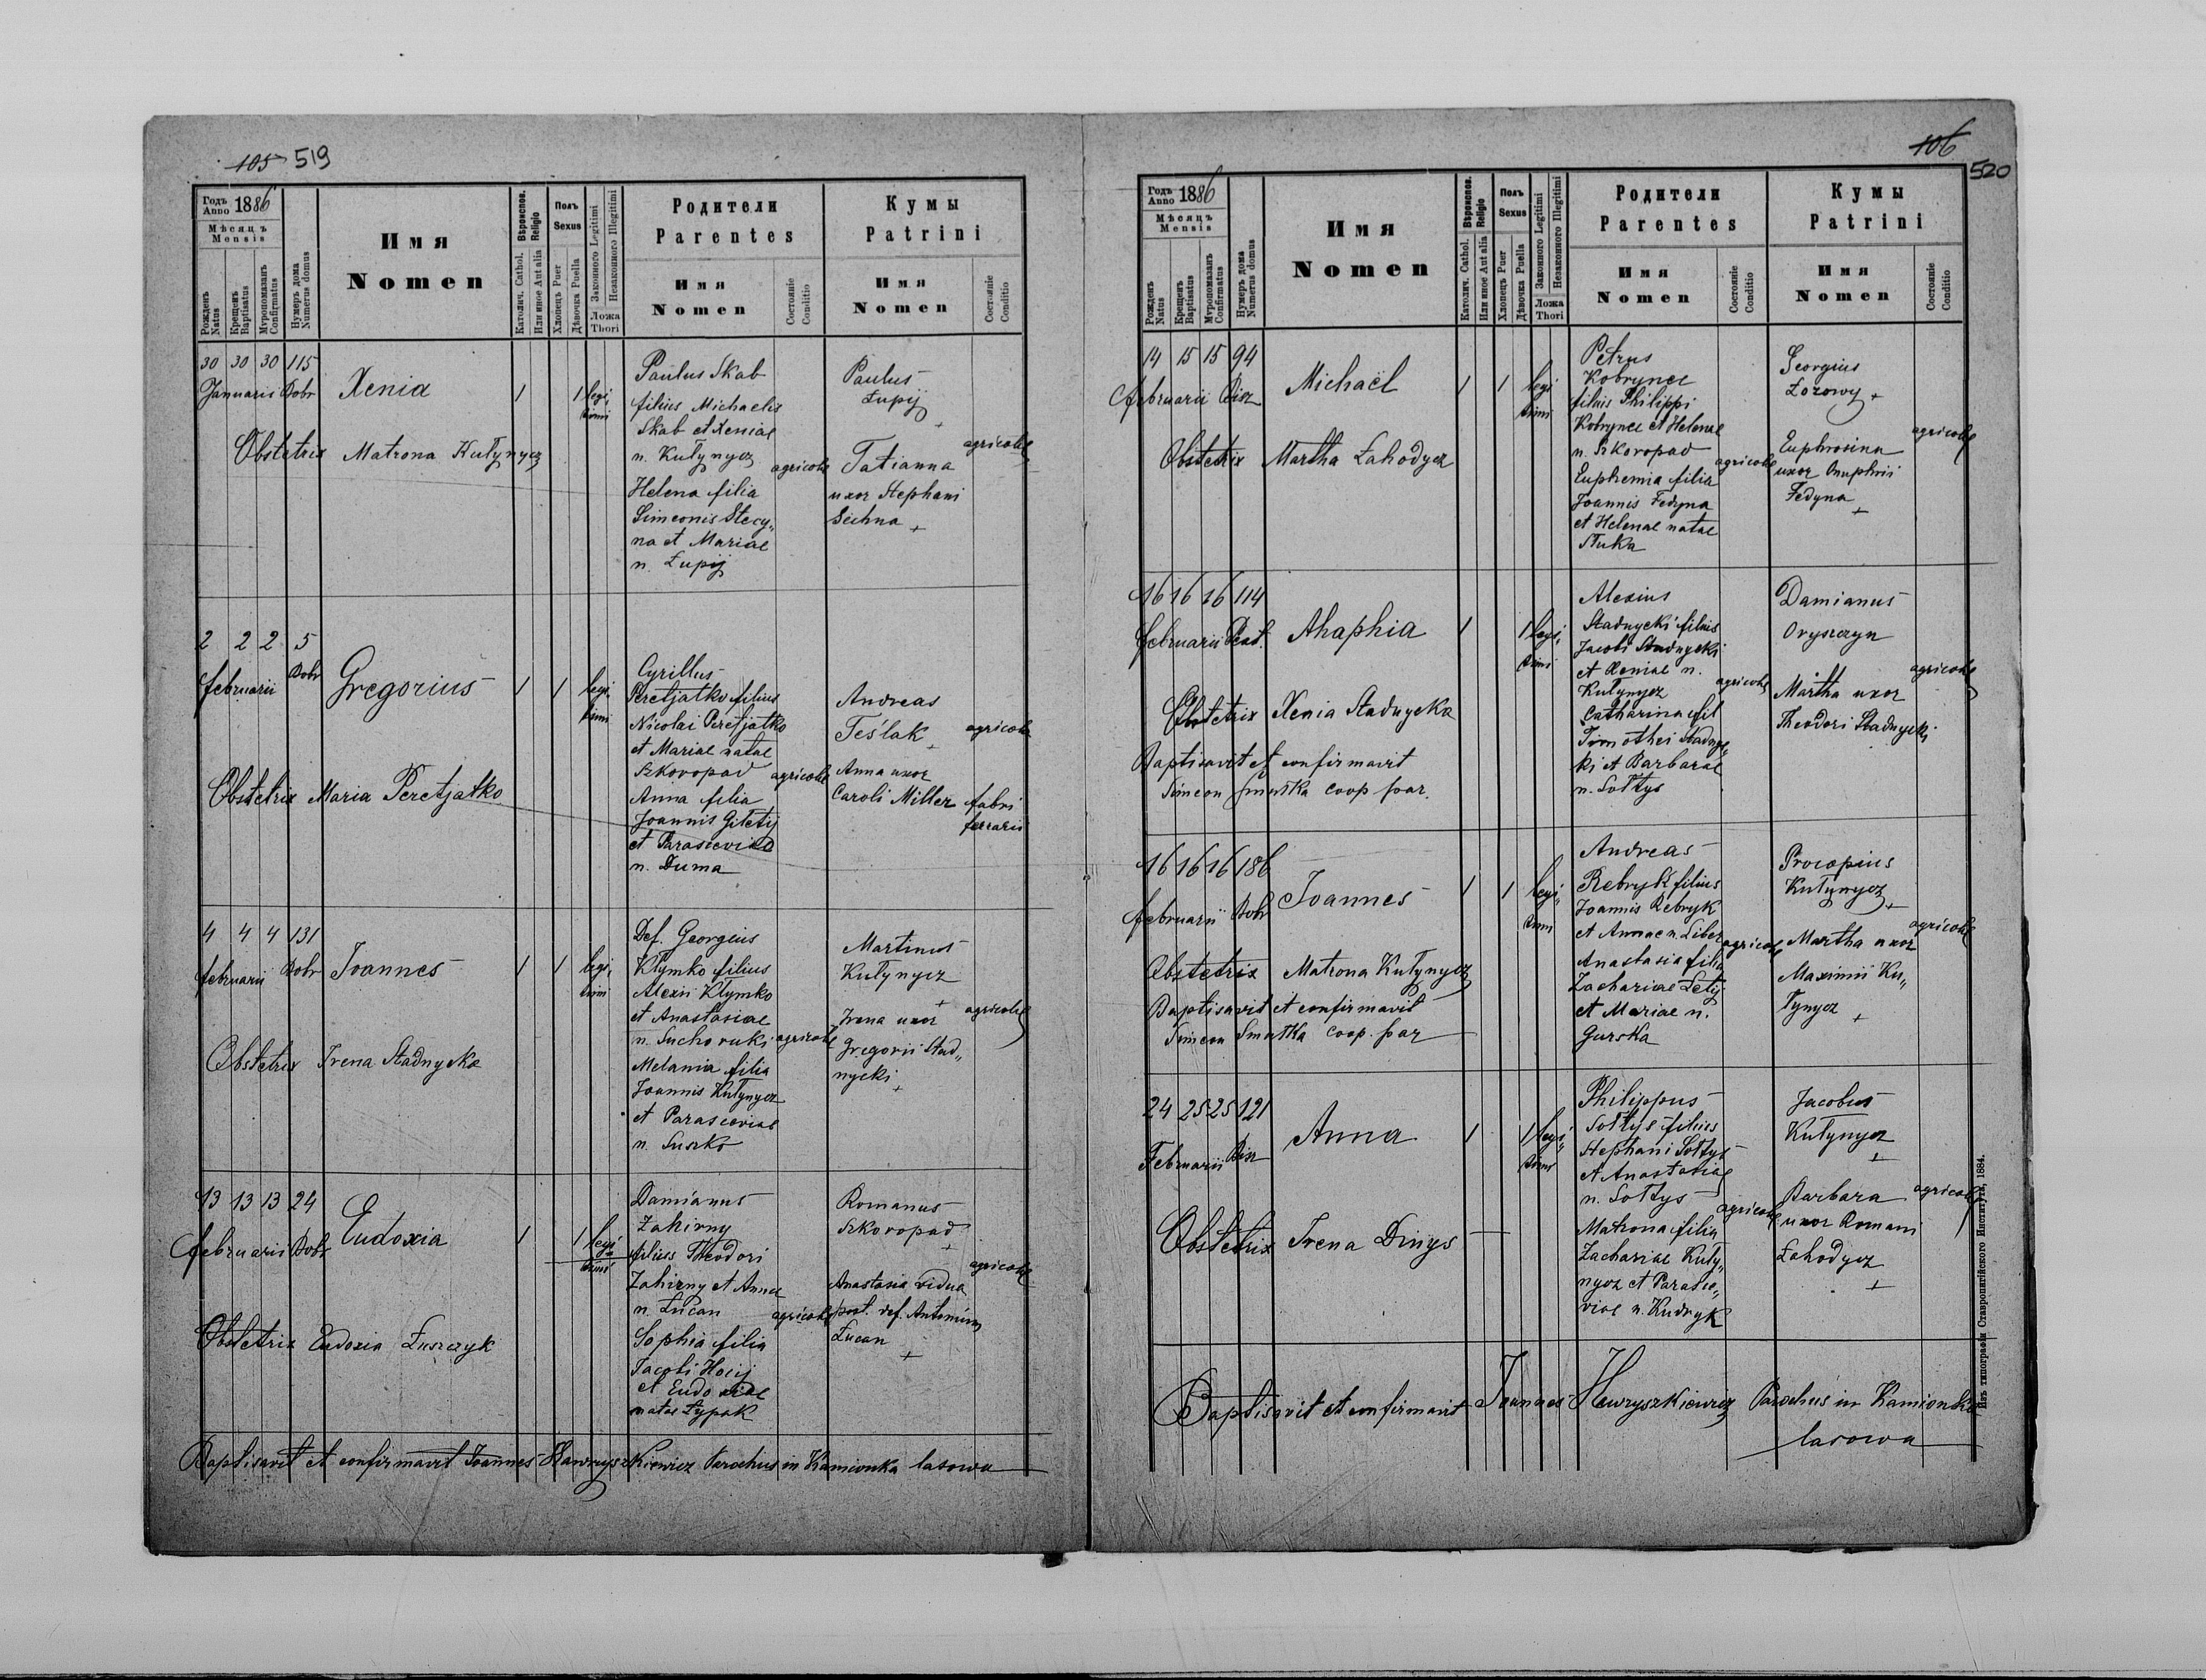 105 519
Годъ Anno 1886
Мѣсяцъ
Mensis
Рожденъ Natus
Крещенъ Baptisatus
Муропомазанъ Confirmatus
Нумеръ дома Numerus domus
Имя
Nomen
Вѣроиспов. Religio
Католич. Cathol.
Или иное Aut alia
Полъ
Sexus
Хлопець Puer
Дѣвочка Puella
Законного Legitimi
Незаконного Illegitimi
Ложа
Thori
Родители
Parentes
Имя
Nomen
Состояніе Conditio
Кумы
Patrini
Имя
Nomen
Состояніе Conditio
30 30 30 115
Januarii Dobr Xenia 1 1 legi„
timi
Obstetrix Matrona Kułynycz
Paulus Skab
filius Michaelis
Skab et Xeniae
n. Kułynycz
agricolae
Helena filia
Simeonis Stecy„
na et Mariae
n. Łupij
Paulus
Łupij
+
Tatianna
uxor Stephani
Sichna +
agricolae
2 2 2 5
februarii Dobr Gregorius 1 1 legi„
timi
Obstetrix Maria Peretjatko
Cyrillus
Peretjatko filius
Nicolai Peretjatko
et Mariae natae
Szkoropad agricolae
Anna filia
Joannis Giletij
et Parasceviae
n. Duma
Andreas
Teślak + agricola
Anna uxor
Caroli Miller fabri
ferrarii
4 4 4 131
februarii Dobr Joannes 1 1 legi„
timi
Obstetrix Irena Stadnycka
Def. Georgius
Klymko filius
Alexii Klymko
et Anastasiae
n. Suchoruki agricolae
Melania filia
Joannis Kułynycz
et Parasceviae
n. Suszko
Martinus
Kułynycz
+
Irena uxor
Gregorii Stad„
nycki
+
agricolae
13 13 13 24
februarii Dobr Eudoxia 1 1 legi„
timi
Obstetrix Eudoxia Łuszczyk
Damianus
Zahirny
filius Theodori
Zahirny et Annae
n. Łucan agricolae
Sophia filia
Jacobi Hocij
et Eudoxiae
natae Łypak
Romanus
Szkoropad
+
Anastasia vidua
post. def. Antonium
Łucan
+
agricolae
Baptisavit et confirmavit Joannes Hawryszkiewicz Parochus in Kamionka lasowa
106
520
Годъ Anno 1886
Мѣсяцъ
Mensis
Рожденъ Natus
Крещенъ Baptisatus
Муропомазанъ Confirmatus
Нумеръ дома Numerus domus
Имя
Nomen
Вѣроиспов. Religio
Католич. Cathol.
Или иное Aut alia
Полъ
Sexus
Хлопець Puer
Дѣвочка Puella
Законного Legitimi
Незаконного Illegitimi
Ложа
Thori
Родители
Parentes
Имя
Nomen
Состояніе Conditio
Кумы
Patrini
Имя
Nomen
Состояніе Conditio
14 15 15 94
februarii Bisz Michaël 1 1 legi
timi
Obstetrix Martha Łahodycz
Petrus
Kobrynce
filius Philippi
Kobrynce et Helenae
n. Szkoropad
agricolae
Euphemia filia
Joannis Fedyna
et Helenae natae
Stuka
Georgius
Łozowy +
Euphrosina
uxor Onuphrii
Fedyna
+
agricolae
16 16 16 114
februarii Ahaphia 1 1 legi„
timi
Obstetrix Xenia Stadnycka
Baptisavit et confirmavit
Simeon Smutka coop par.
Alexius
Stadnycki filius
Jacobi Stadnycki
et Xeniae n.
Kułynycz agricolae
Catharina fil
Timothei Stadny„
ki et Barbarae
n. Sołtys
Damianus
Oryszczyn
Martha uxor
Theodori Stadnycki
agricolae
16 16 16 186
februarii Dobr Joannes 1 1 legi„
timi
Obstetrix Matrona Kułynycz
Baptisavit et confirmavit
Simeon Smutka coop. par
Andreas
Rebryk filius
Joannis Rebryk
et Annae n. Liber
agricolae
Anastasia filia
Zachariae Letij
et Mariae n.
Gurska
Procopius
Kułynycz
+
Martha uxor
Maximi Ku„
łynycz
+
agricolae
24 25 25 121
Februarii Bisz Anna 1 1 legi„
timi
Obstetrix Irena Dinys
Philippus
Sołtys filius
Stephani Sołtys
et Anastasiae
n. Sołtys agricolae
Matrona filia
Zachariae Kuły„
nycz et Parasce„
viae n. Kudryk
Jacobus
Kułynycz
+
Barbara
uxor Romani
Łahodycz
+
agricolae
Baptisavit et confirmavit Joannes Hawryszkiewicz Parochus in Kamionka
lasowa
Изъ типографіи Ставропигійского Института, 1884.